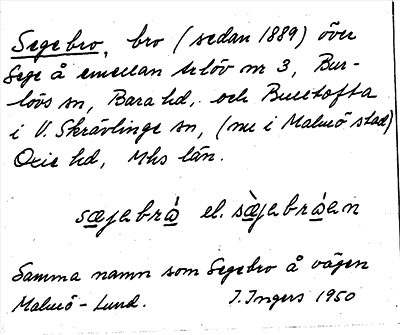 Segebro, bro (sedan 1889) över
Sege å emellan Arlöv nr 3, Bur-
lövs sn, Bara hd, och Bulltofta
i V. Skrävlinge sn, (nu i Malmö stad)
Oxie hd, Mhs län.
sæjabrå̀ el. sæ̀jabrå̀en
Samma namn som Segebro å vägen
Malmö - Lund. I. Ingers 1950